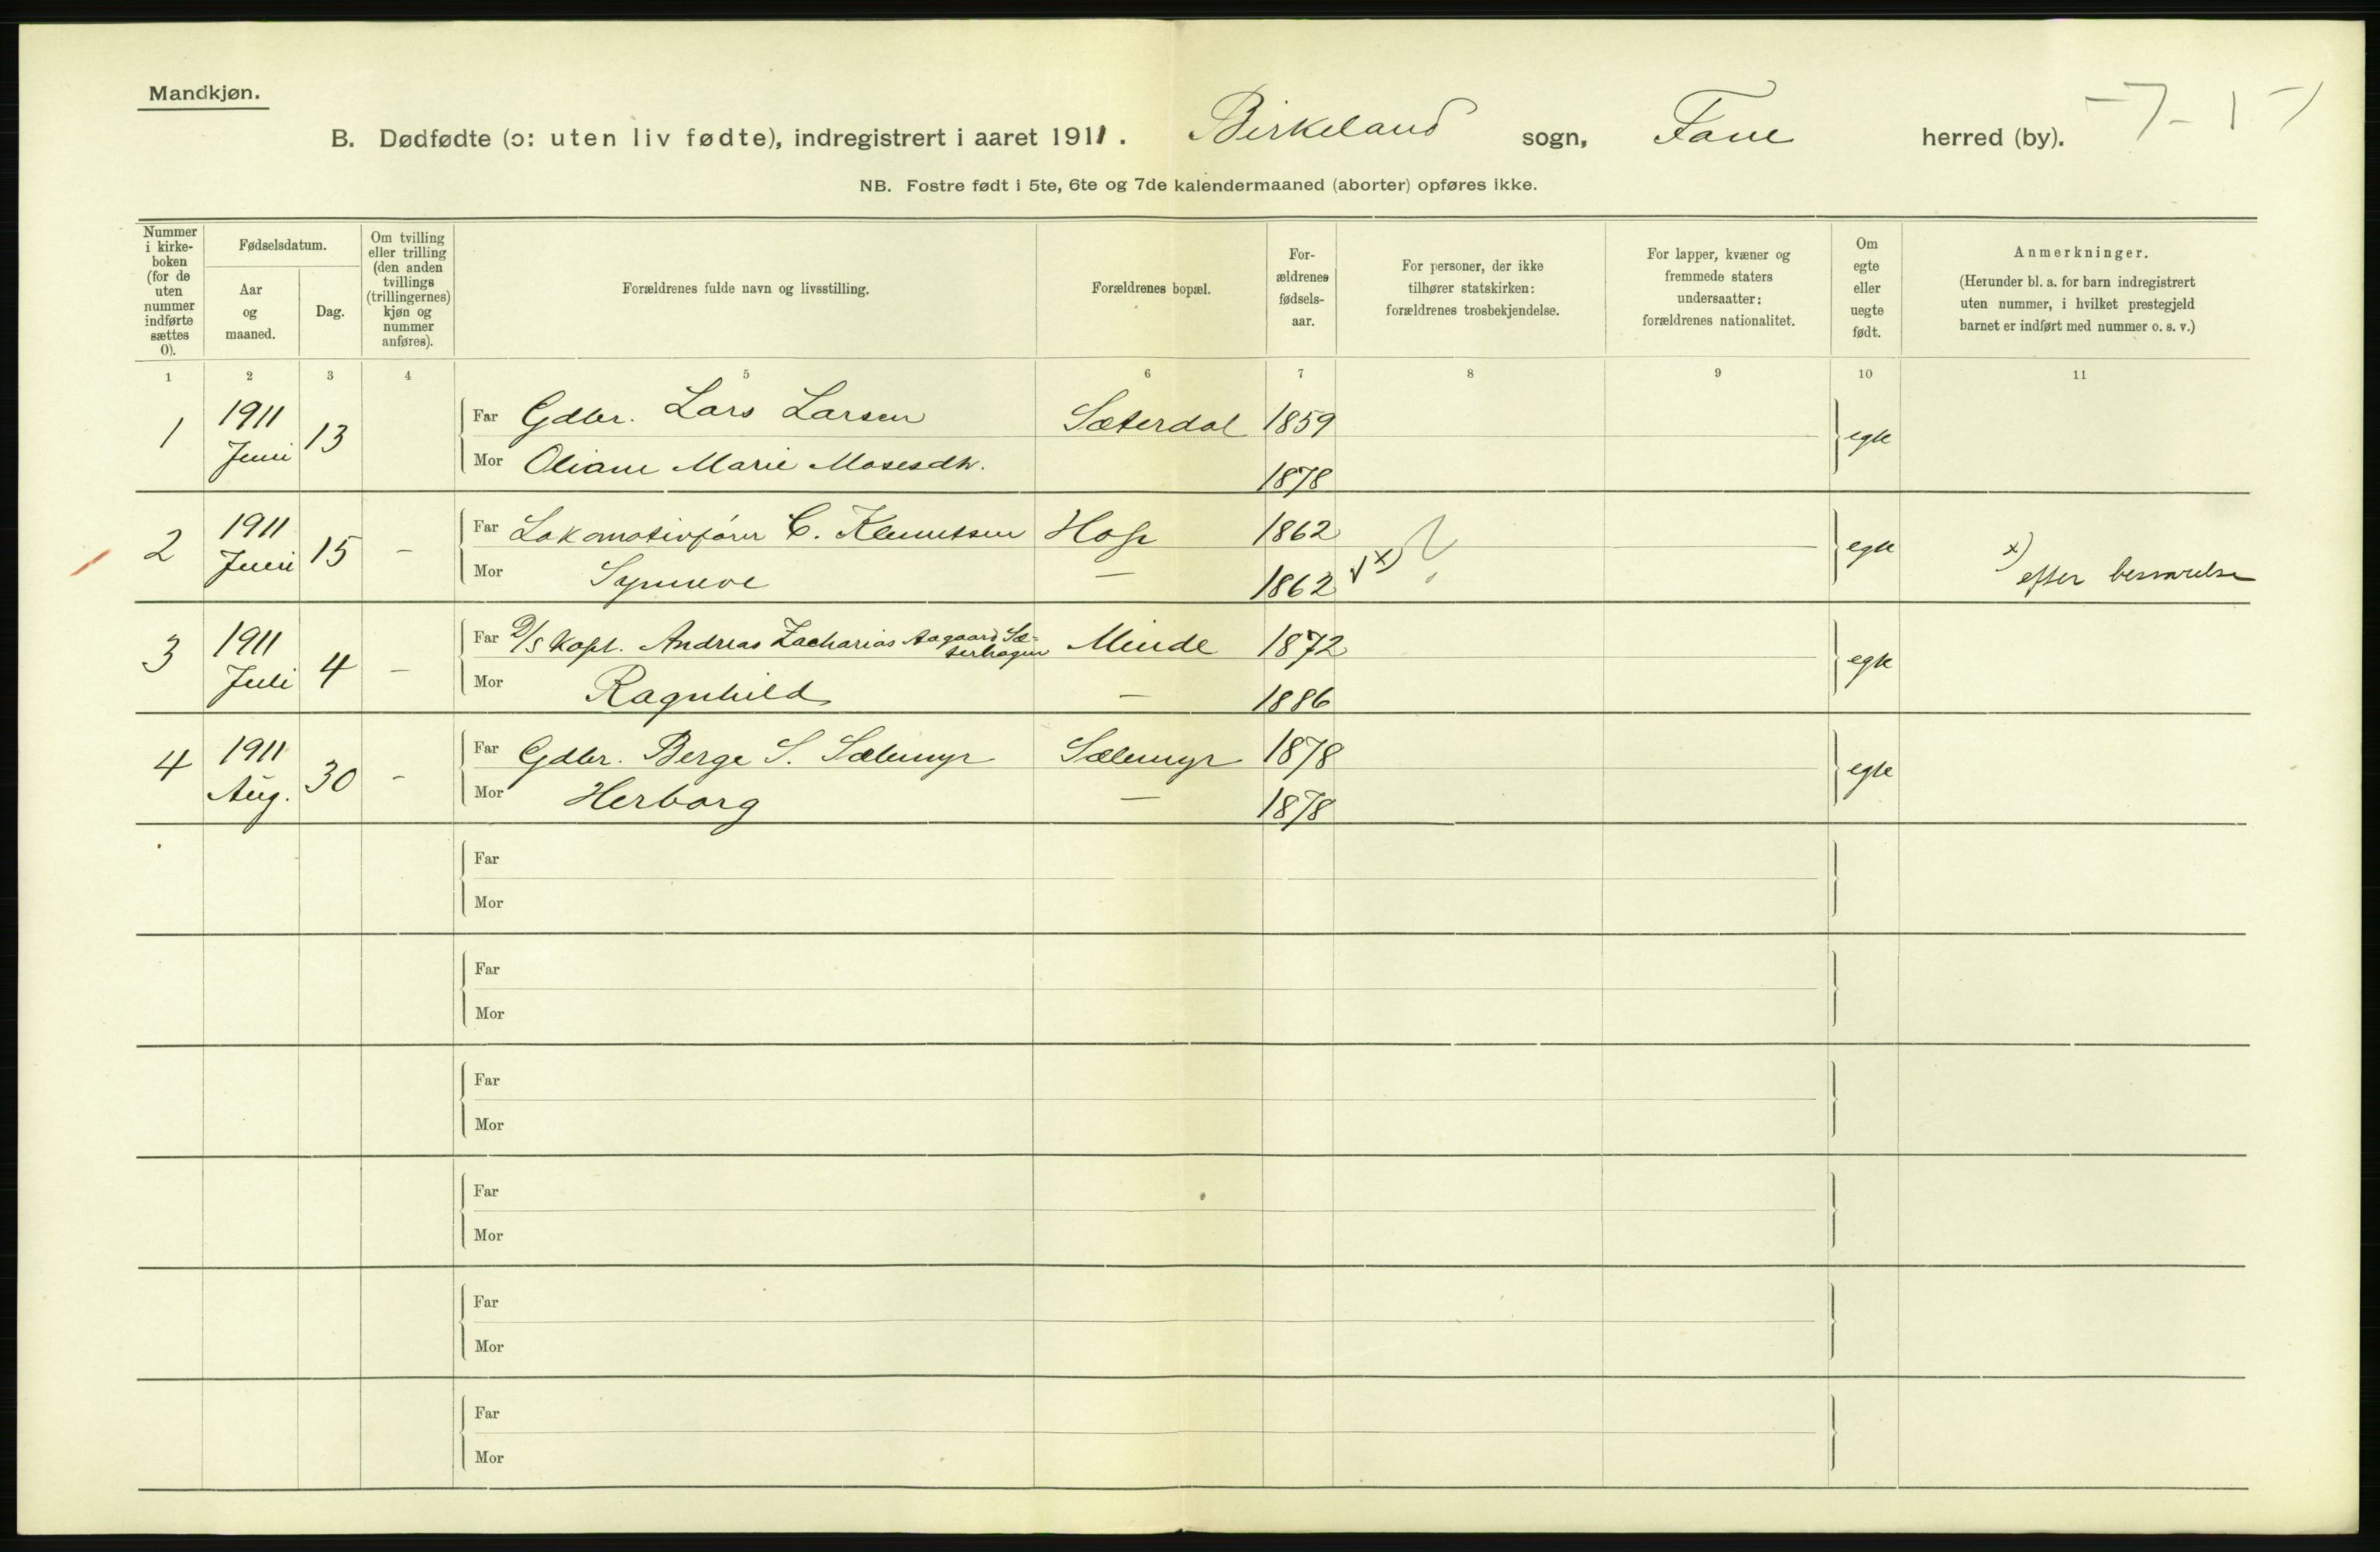 Mandkjøn.
B. Dødfødte (ɔ: uten liv fødte), indregistrert i aaret 1911. Birkeland sogn, Fane herred (by).
NB. Fostre født i 5te, 6te og 7de kalendermaaned (aborter) opføres ikke.
Nummer i kirke-boken (for de uten nummer indførte sættes 0).
Fødselsdatum.
Aar og maaned.
Dag.
Om tvilling eller trilling (den anden tvillings (trillingernes) kjøn og nummer anføres).
Forældrenes fulde navn og livsstilling.
Forældrenes bopæl.
For-ældrenes fødsels-aar.
For personer, der ikke tilhører statskirken: forældrenes trosbekjendelse.
For lapper, kvæner og fremmede staters undersaatter: forældrenes nationalitet.
Om egte eller uegte født.
Anmerkninger.
(Herunder bl. a. for barn indregistrert uten nummer, i hvilket prestegjeld barnet er indført med nummer o. s. v.)
1 2 3 4 5 6 7 8 9 10 11
1 1911 Juni 13 Far Gdbr. Lars Larsen Sæterdal 1859 egte
Mor Oliane Marie Mosesdtr. 1878
2 1911 Juni 15 – Far Lokomotivfører C. Klemetsen Hop 1862 ? egte
Mor Synneve – 1862 x) x) efter besvarelse
3 1911 Juli 4 – Far D/S Kapt. Andreas Zacharias Aagaard Sæ-terhagen Minde 1872 egte
Mor Ragnhild – 1886
4 1911 Aug. 30 – Far Gdbr. Berge S. Sælemyr Sælemyr 1878 egte
Mor Herborg – 1878
Far
Mor
Far
Mor
Far
Mor
Far
Mor
Far
Mor
Far
Mor